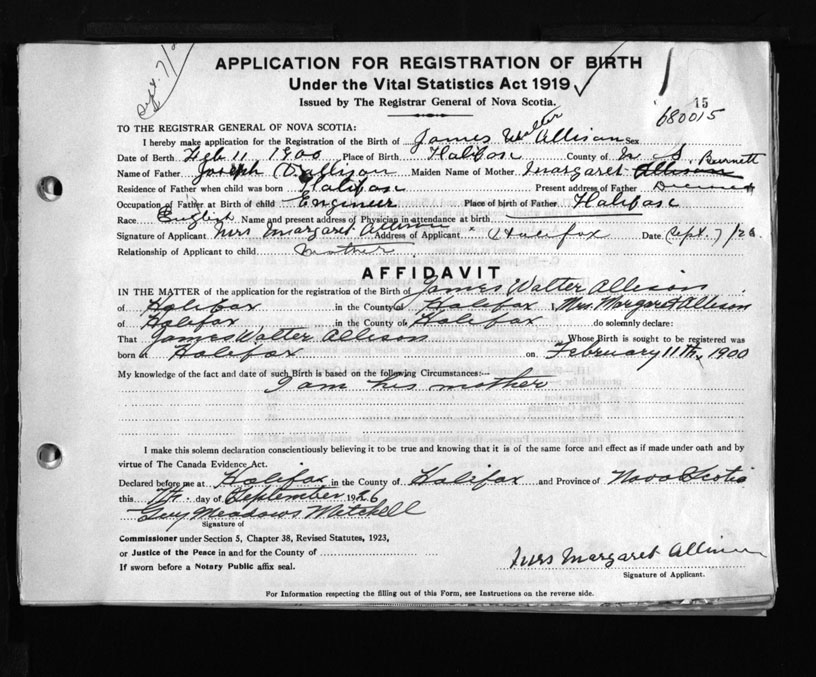 Sept. 7/2
APPLICATION FOR REGISTRATION OF BIRTH
Under the Vital Statistics Act 1919
Issued by The Registrar General of Nova Scotia.
15
680015
TO THE REGISTRAR GENERAL OF NOVA SCOTIA:
I hereby make application for the Registration of the Birth of James Walter Allison Sex
Date of Birth Feb 11, 1900 Place of Birth Halifax County of N. S.
Name of Father Joseph Allison Maiden Name of Mother Margaret Allison Burnett
Residence of Father when child was born Halifax Present address of Father
Occupation of Father at Birth of child Engineer Place of birth of Father Halifax
Race English Name and present address of Physician in attendance at birth
Signature of Applicant Mrs Margaret Allison Address of Applicant Halifax Date Sept. 7/26
Relationship of Applicant to child Mother
AFFIDAVIT
IN THE MATTER of the application for the registration of the Birth of James Walter Allison
of Halifax in the County of Halifax, Mrs. Margaret Allison
of Halifax in the County of Halifax do solemnly declare:
That James Walter Allison Whose Birth is sought to be registered was
born at Halifax on February 11th, 1900
My knowledge of the fact and date of such Birth is based on the following Circumstances:—
I am his mother
I make this solemn declaration conscientiously believing it to be true and knowing that it is of the same force and effect as if made under oath and by
virtue of The Canada Evidence Act.
Declared before me at Halifax in the County of Halifax and Province of Nova Scotia
this 7th day of September 1926
Guy Meadows Mitchell
Signature of
Commissioner under Section 5, Chapter 38, Revised Statutes, 1923,
or Justice of the Peace in and for the County of
If sworn before a Notary Public affix seal.
Mrs Margaret Allison
Signature of Applicant.
For Information respecting the filling out of this Form, see Instructions on the reverse side.